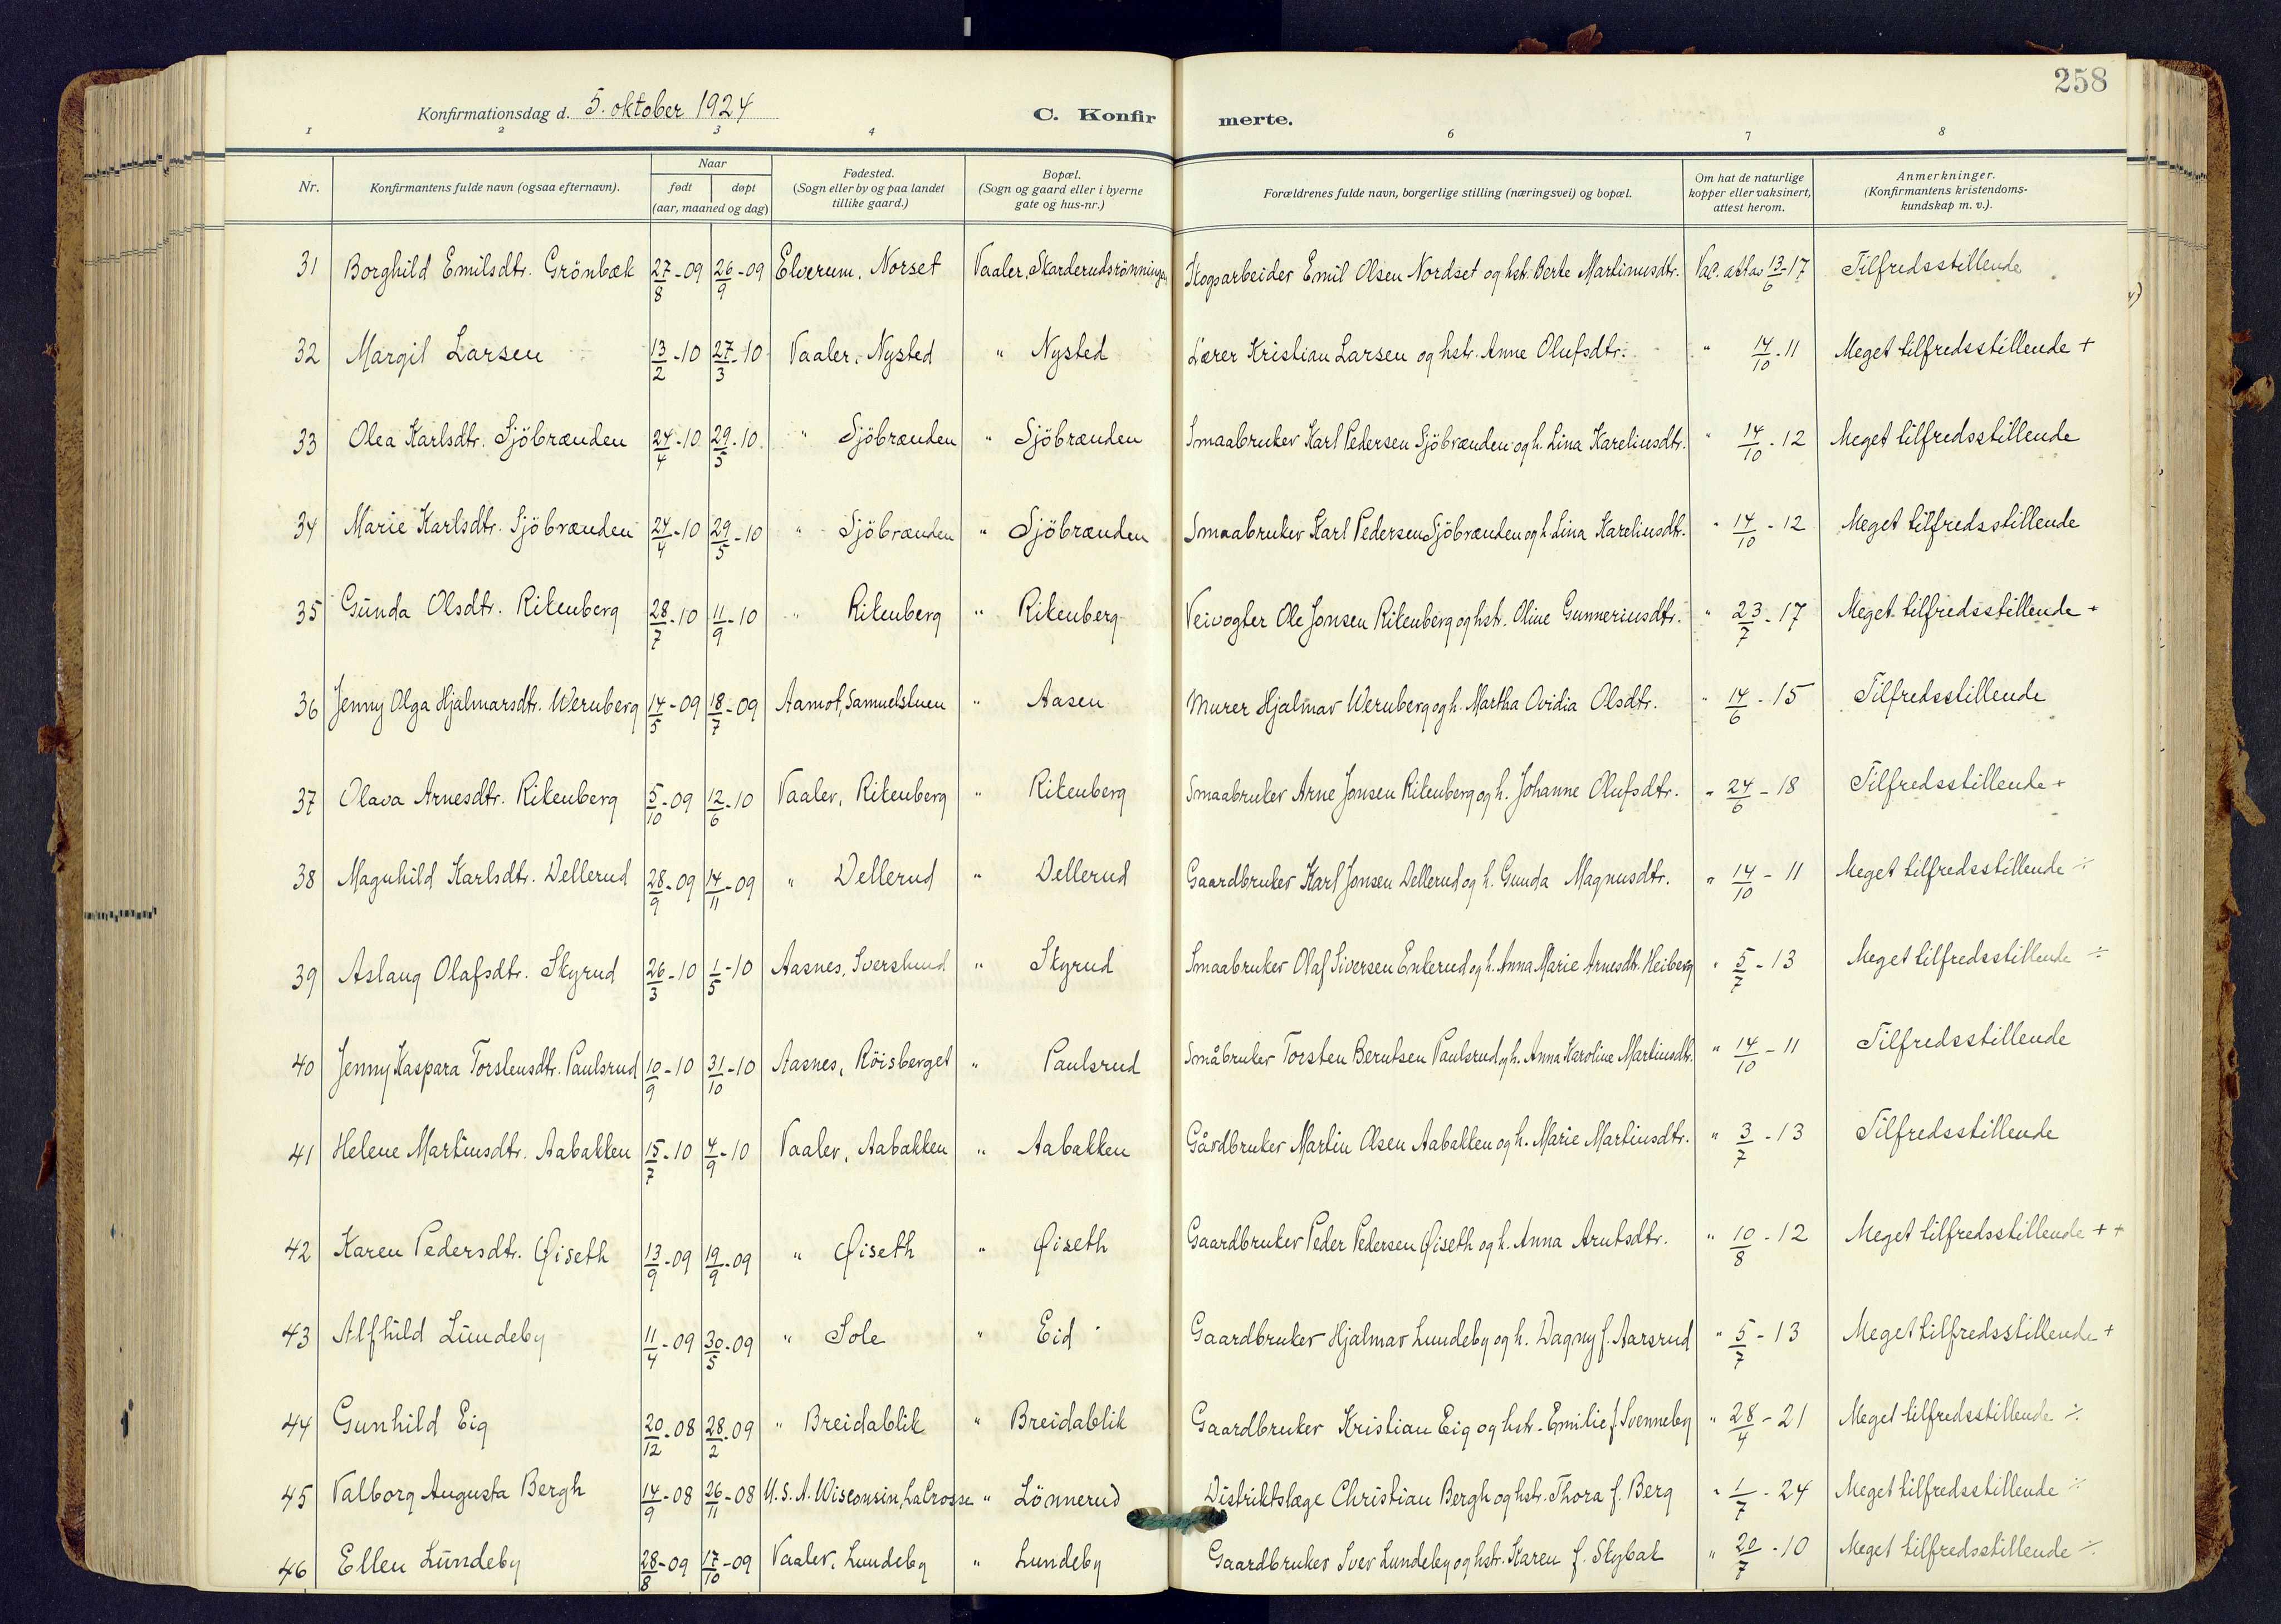 258
Konfirmationsdag d. 5. oktober 1924 C. Konfir merte.
1 2 3 4 6 7 8
Nr. Konfirmantens fulde navn (ogsaa efternavn). Naar født døpt (aar, maaned og dag) Fødested. (Sogn eller by og paa landet tillike gaard.) Bopæl. (Sogn og gaard eller i byerne gate og hus-nr.) Forældrenes fulde navn, borgerlige stilling (næringsvei) og bopæl. Om hat de naturlige kopper eller vaksinert, attest herom. Anmerkninger. (Konfirmantens kristendoms-kundskap m. v.).
31 Borghild Emilsdtr. Grönbæk 27/8-09 26/9-09 Elverum, Norset Vaaler, Skarderudsrönningen Skogsarbeider Emil Olsen Nordset og hstr. Berte Martinusdtr. Vac. att av 13/6-17 Tilfredsstillende
32 Margit Larsen 13/2-10 27/3-10 Vaaler, Nysted " Nysted Lærer Kristian Larsen og hstr. Anne Olufsdtr. " 14/10-11 Meget tilfredsstillende +
33 Olea Karlsdtr. Sjöbrænden 24/4-10 29/5-10 " Sjöbrænden " Sjöbrænden Smaabruker Karl Pedersen Sjöbrænden og h. Lina Kareliusdtr. " 14/10-12 Meget tilfredsstillende
34 Marie Karlsdtr. Sjöbrænden 24/4-10 29/5-10 " Sjöbrænden " Sjöbrænden Smaabruker Karl Pedersen Sjöbrænden og h. Lina Kareliusdtr. " 14/10-12 Meget tilfredsstillende
35 Gunda Olsdtr. Ritenberg 28/7-10 11/9-10 " Ritenberg " Ritenberg Veivogter Ole Jonsen Ritenberg og hstr. Oline Gunneriusdtr. " 23/7-17 Meget tilfredsstillende +
36 Jenny Olga Hjalmarsdtr. Wernberg 14/5-09 18/7-09 Aamot, Samuelstuen " Aasen Murer Hjalmar Wernberg og h. Martha Ovidia Olsdtr. " 14/6-15 Tilfredsstillende
37 Olava Arnesdtr. Ritenberg 5/10-09 12/6-10 Vaaler, Ritenberg " Ritenberg Smaabruker Arne Jonsen Ritenberg og h. Johanne Olufsdtr. " 24/6-18 Tilfredsstillende +
38 Magnhild Karlsdtr. Dellerud 28/9-09 14/11-09 " Dellerud " Dellerud Gaardbruker Karl Jonsen Dellerud og h. Gunda Magnusdtr. " 14/10-11 Meget tilfredsstillende ÷
39 Aslaug Olafsdtr. Skyrud 26/3-10 1/5-10 Aasnes, " Skyrud Smaabruker Olaf Siversen Enkerud og h. Anna Marie Arnesdtr. Heiberg " 5/7-13 Meget tilfredsstillende ÷
40 Jenny Kaspara Torstensdtr. Paulsrud 10/9-10 31/10-10 Aasnes, Röisberget " Paulsrud Småbruker Torsten Berntsen Paulsrud og h. Anna Karoline Martinsdtr. " 14/10-11 Tilfredsstillende
41 Helene Martinsdtr. Aabakken 15/7-10 4/9-10 Vaaler, Aabakken " Aabakken Gårdbruker Martin Olsen Aabakken og h. Marie Martiusdtr. " 3/7-13 Tilfredsstillende
42 Karen Pedersdtr. Øiseth 13/9-09 19/9-09 " Øiseth " Øiseth Gaardbruker Peder Pedersen Øiseth og h. Anna Arntsdtr. " 10/8-12 Meget tilfredsstillende ++
43 Alfhild Lundeby 11/4-09 30/5-09 " Sole " Eid Gaardbruker Hjalmar Lundeby og h. Dagny f. Aarsrud " 5/7-13 Meget tilfredsstillende +
44 Gunhild Eig 20/12-08 28/2-09 " Breidablik " Breidablik Gaardbruker Kristian Eig og hstr. Emilie f. Svenneby " 28/4-21 Meget tilfredsstillende ÷
45 Valborg Augusta Bergh 14/9-08 26/11-08 U.S.A. Wisconsin, La Crosse " Lönnerud Distriktslæge Christian Bergh og hstr. Thora f. Berg " 1/7-24 Meget tilfredsstillende ÷
46 Ellen Lundeby 28/8-09 17/10-09 Vaaler, Lundeby " Lundeby Gaardbruker Sver Lundeby og hstr. Karen f. Skybak " 20/7-10 Meget tilfredsstillende ÷